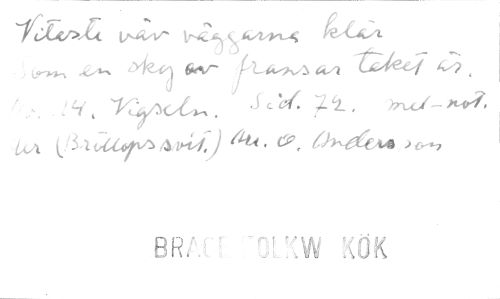 Vitaste väv väggarna klär
som en sky av fransar taket är.
No. 14. Vigseln. Sid. 72. mel-not.
ur (Bröllopssvit.) Au. O. Andersson
BRAGE FOLKW KÖK